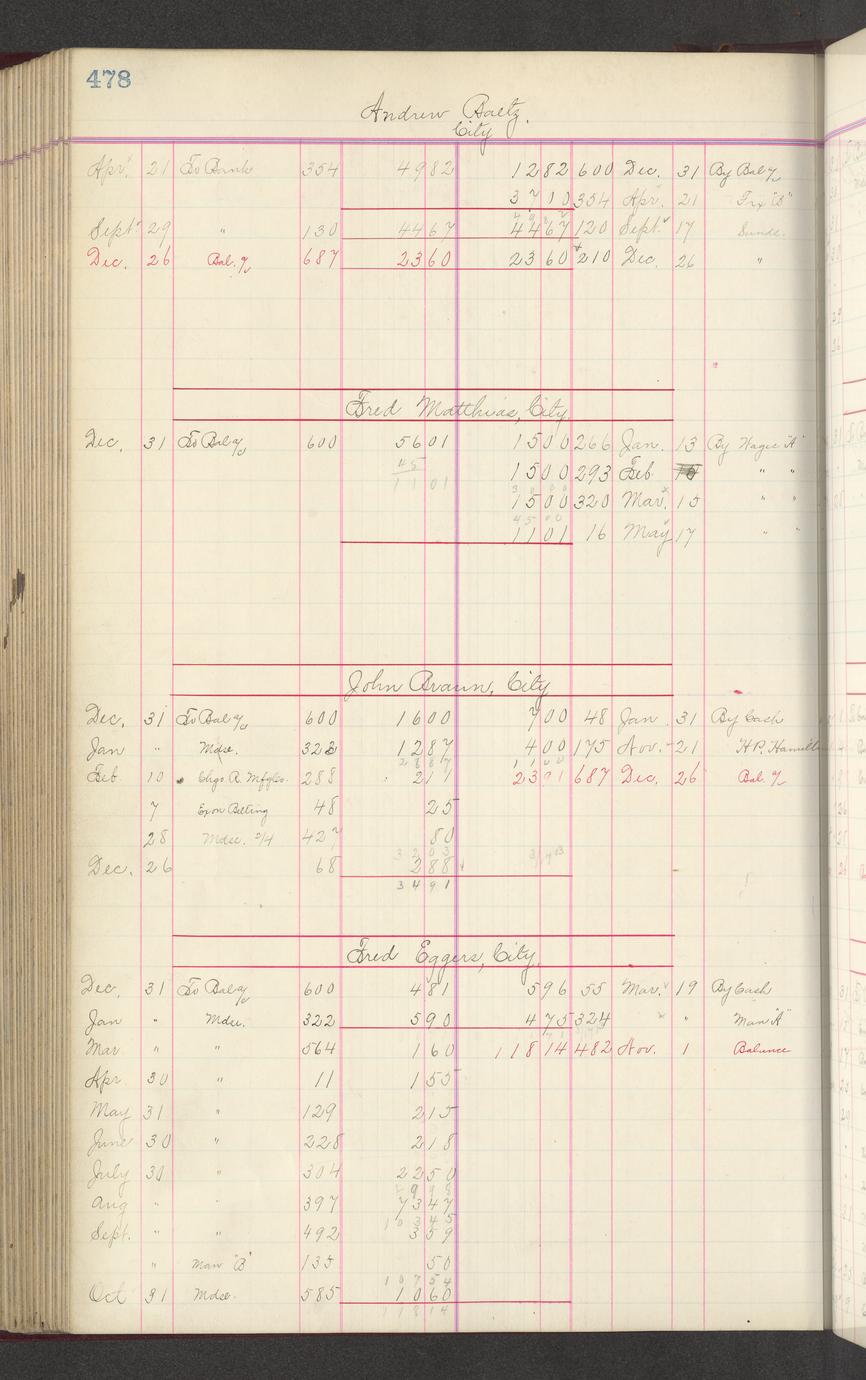 478
Andrew Baltz.
City
Apr. 21 To Bank 354 4982 1282 600 Dec. 31 By Bal %
3710 354 Apr. 21
Sept. 29 " 130 4467 4467 120 Sept. 17 Sunds.
Dec. 26 Bal. % 687 2360 2360 210 Dec. 26 "
Fred Matthias, City
Dec. 31 To Bal % 600 5601 1500 266 Jan. 13 By Wages "A"
45
1500 293 Feb " "
1101
3000
1500 320 Mar. 15 " "
4500
1101 16 May 17 " "
John Braun, City
Dec. 31 To Bal % 600 1600 700 48 Jan. 31 By Cash
Jan " Mdse. 322 1287 400 175 Nov. 21 H.P. Hamilt
2887 1100
Feb 10 Chgo R. Mfg Co. 288 211 2391 687 Dec. 26 Bal. %
7 Exon Belting 48 25
28 Mdse. 427 80
3203
Dec. 26 68 288
3491
Fred Eggers, City.
Dec. 31 To Bal % 600 481 596 55 Mar. 19 By Cash
Jan " Mdse. 322 590 475 324 " Man "A"
Mar " " 564 160 11814 482 Nov. 1 Balance
Apr 30 " 11 155
May 31 " 129 215
June 30 " 228 218
July 30 " 304 2250
Aug " " 397 7347
Sept. " " 492 359
" Man "B" 135 50
10754
Oct 31 Mdse. 585 1060
11814